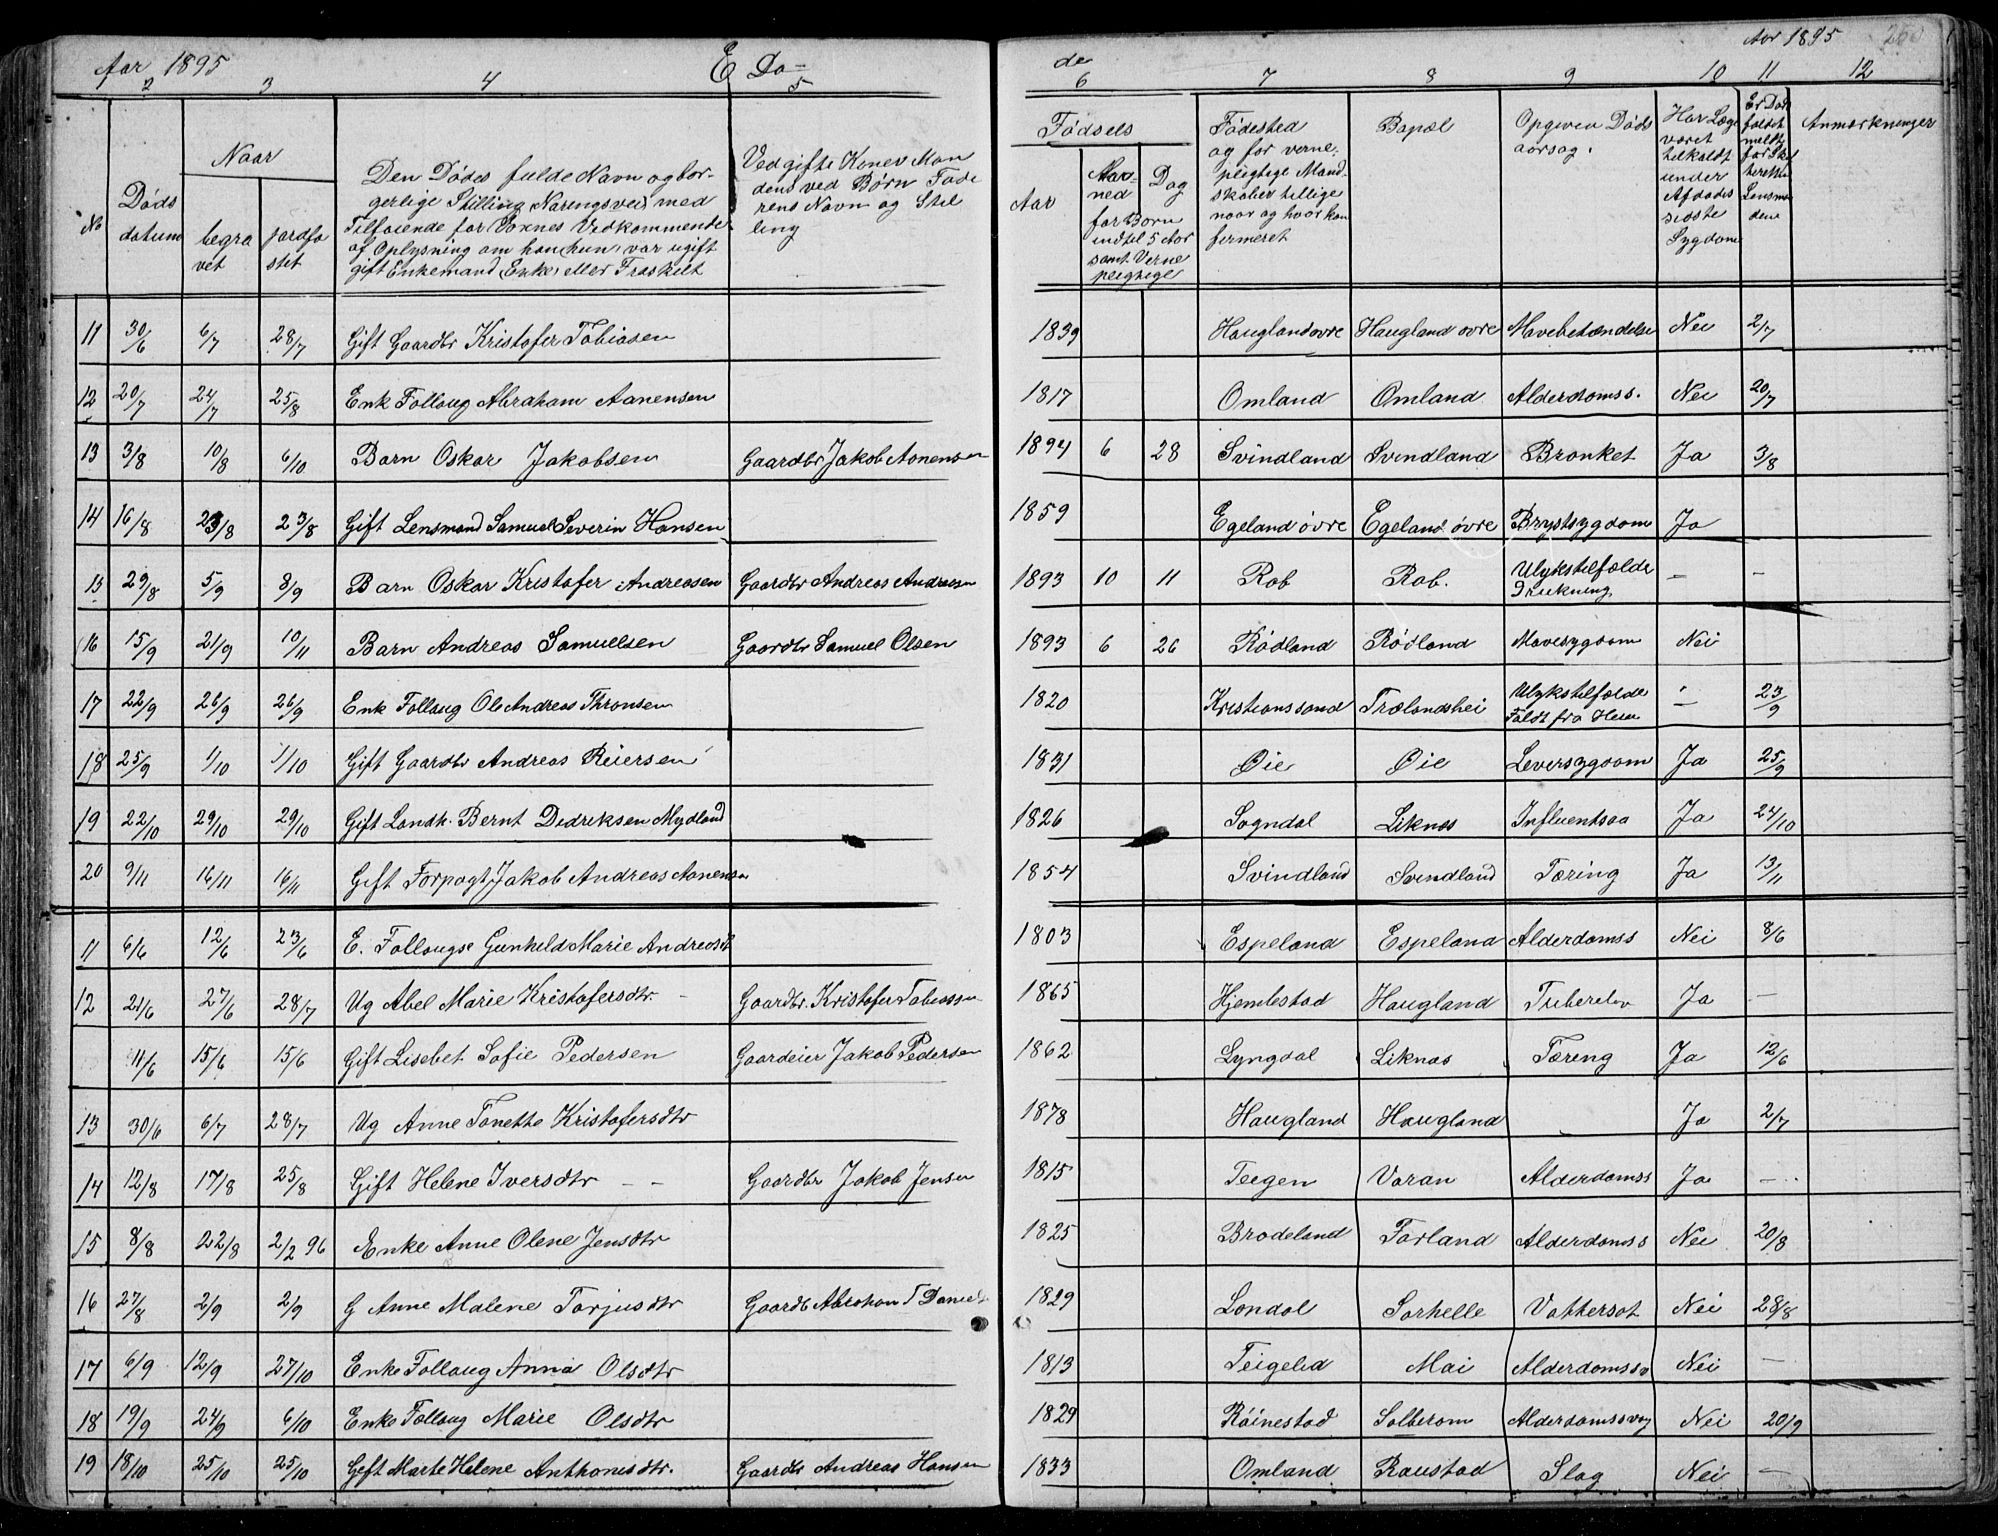 Aar 1895 E Dø-
de Aar 1895 260
1 2 3 4 5
6 7 8 9 10 11 12
No
Døds datum
Naar
begra vet
jordfæ stet
Den Dødes fulde Navn og bor-
gerlige Stilling Næringsvei med
Tilføiende for Voxnes Vedkommende
af Oplysning om han hun var ugift
gift Enkemand Enke eller Fraskilt
Ved gifte Koner Man
dens ved Børn Fade
rens Navn og Stil
ling
Fødsels
Aar
Maa-
ned
Dag
for Børn
indtil 5 Aar
samt Verne
pligtige
Fødested
og for verne-
pligtige Mand-
skaber tillige
naar og hvor kon
firmeret
Bopæl
Opgiven Døds
aarsag.
Har Læge
været
tilkaldt
under
Afdødes
sidste
Sygdom
Er Døds
faldet
meldt
for Skif
teretten
Lensman
den
Anmærkninger
11 30/6 6/7 28/7 Gift Gaardbr Kristofer Tobiasen 1839 Haugland øvre Haugland øvre Mavebetændelse Nei 2/7
12 20/7 24/7 25/8 Enk Follaug Abraham Aanensen 1817 Omland Omland Alderdomss. Nei 20/7
13 3/8 10/8 6/10 Barn Oskar Jakobsen Gaardbr Jakob Aanensen 1894 6 28 Svindland Svindland Bronket Ja 3/8
14 16/8 23/8 23/8 Gift Lensmand Samuel Severin Hansen 1859 Egeland øvre Egeland øvre Brystsygdom Ja
15 29/8 5/9 8/9 Barn Oskar Kristofer Andreasen Gaardbr Andreas Andreasen 1893 10 11 Rob Rob. Ulykstilfælde Drukning — —
16 15/9 21/9 10/11 Barn Andreas Samuelsen Gaardbr Samuel Olsen 1893 6 26 Rødland Rødland Mavesygdom Nei
17 22/9 26/9 26/9 Enk Follaug Ole Andreas Thronsen 1820 Kristianssand Trælandshei Ulykstilfælde Faldt fra — 23/9
18 25/9 1/10 1/10 Gift Gaardbr Andreas Reiersen 1831 Øie Øie Leversygdom Ja 25/9
19 22/10 29/10 29/10 Gift Landh. Bernt Didriksen Mydland 1826 Sogndal Liknes Influentsaa Ja 24/10
20 9/11 16/11 16/11 Gift Forpagt Jakob Andreas Aanensen 1854 Svindland Svindland Tæring Ja 13/11
11 6/6 12/6 23/6 E. Follaugse Gunhild Marie Andreasdt 1803 Espeland Espeland Alderdomss Nei 8/6
12 21/6 27/6 28/7 Ug Abel Marie Kristofersdtr. Gaardbr. Kristofer Tobiassen 1865 Hjemlestad Haugland Ja —
11/6 15/6 15/6 Gift Lisebet Sofie Pedersen Gaardeier Jakob Pedersen 1862 Lyngdal Liknes Tæring Ja 12/6
13 30/6 6/7 28/7 Ug Anne Tonette Kristofersdtr 1878 Haugland Haugland Ja 2/7
14 12/8 17/8 25/8 Gift Helene Iversdtr — — Gaardbr Jakob Jensen 1815 Teegen Varan Alderdomss Ja —
15 8/8 22/8 2/2 96 Enke Anne Olene Jensdtr 1825 Brodeland Førland Alderdomss Nei 20/8
16 27/8 2/9 2/9 G Anne Malene Torjusdtr Gaardb Abraham T Daniels 1829 Londal Sørhelle Vattersot Nei 28/8
17 6/9 12/9 27/10 Enke Follaug Anna Olsdtr 1813 Teigelid Moi Alderdomssv Nei —
18 19/9 24/9 6/10 Enke Follaug Marie Olsdtr 1829 Røinestad Solberom Alderdomssvag Nei 20/9
19 18/10 25/10 25/10 Gift Marte Helene Anthonisdtr. Gaardbr Andreas Hansen 1833 Omland Raustad Slag Nei —